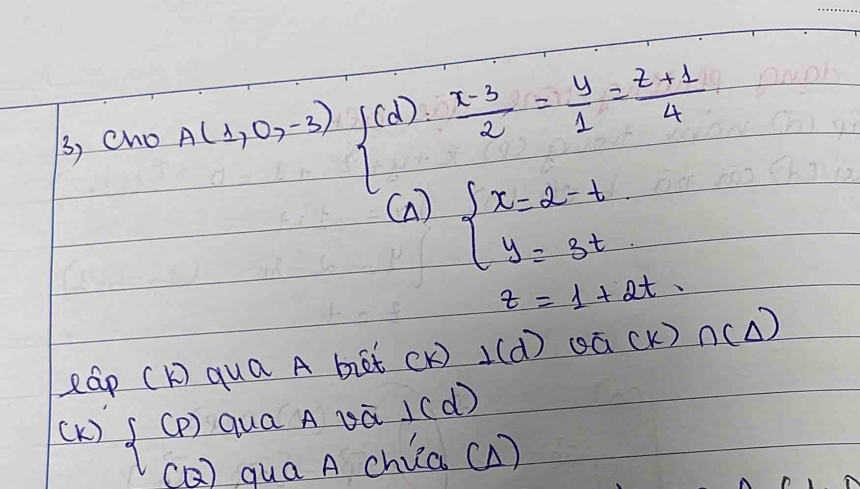 3, Cho A(1,0,-3) { (d): x-3/2 = y/1 = z+1/4
(Δ) { x = 2 - t.
y = 3t.
z = 1 + 2t.
Lập (K) qua A biết (K) ⊥(d) và (K) ∩(Δ)
(K) { (P) qua A và ⊥(d)
(Q) qua A chứa (Δ)